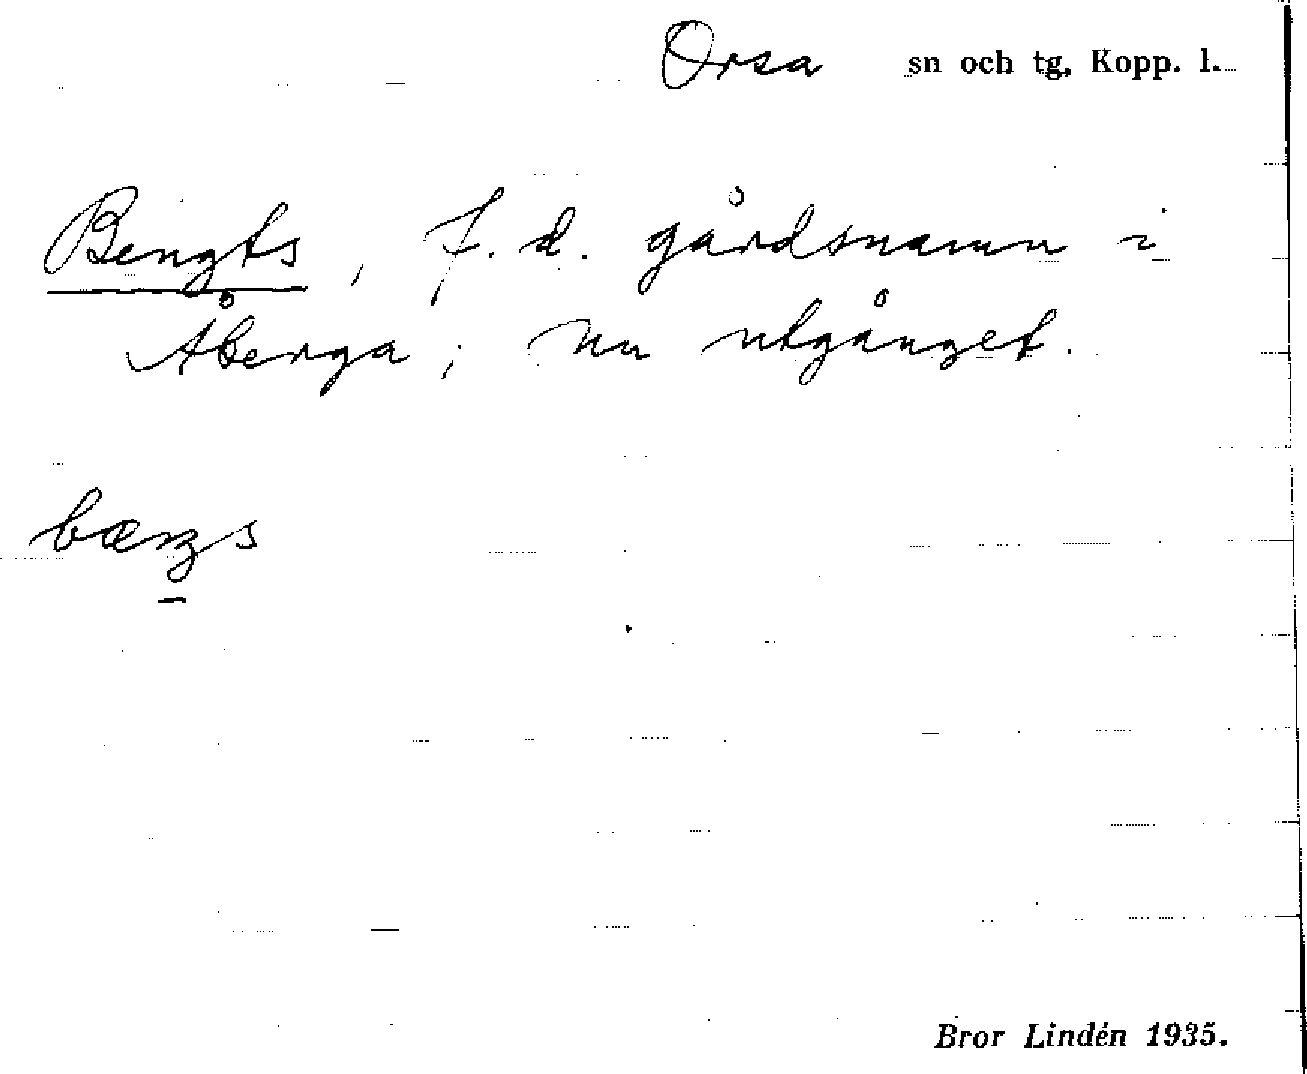 Orsa sn och tg, Kopp. l.
Bengts, f. d. gårdsnamn i
Åberga; nu utgånget.
Bror Lindén 1935.